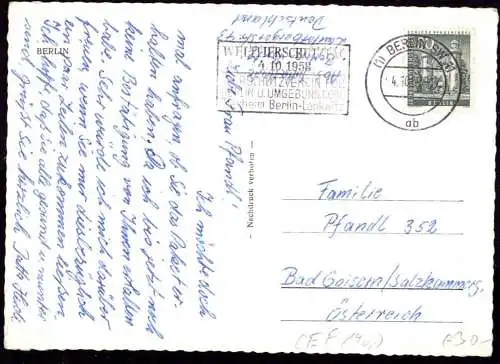 BERLIN
Liebe Frau Pfandl!
Ich möchte doch
mal anfragen, ob Sie das Paket er-
halten haben, da ich bis jetzt noch
keine Bestätigung von Ihnen erhalten
habe. Sehr würde ich mich darüber
freuen, wenn Sie mir diesbezüglich
ein paar Zeilen zukommen ließen.
Ich hoffe, daß Sie alle gesund u. munter
sind, grüßt Sie herzlich
Deutschland
- Nachdruck verboten -
WELTTIERSCHUTZTAG
4.10.1958
TIERSCHUTZVEREIN FÜR
BERLIN U. UMGEBUNG
Tierheim Berlin-Lankwitz
(1) BERLIN SW
4.10.58
ab
BERLIN
Familie
Pfandl 352
Bad Goisern/Salzkammerg.
Österreich